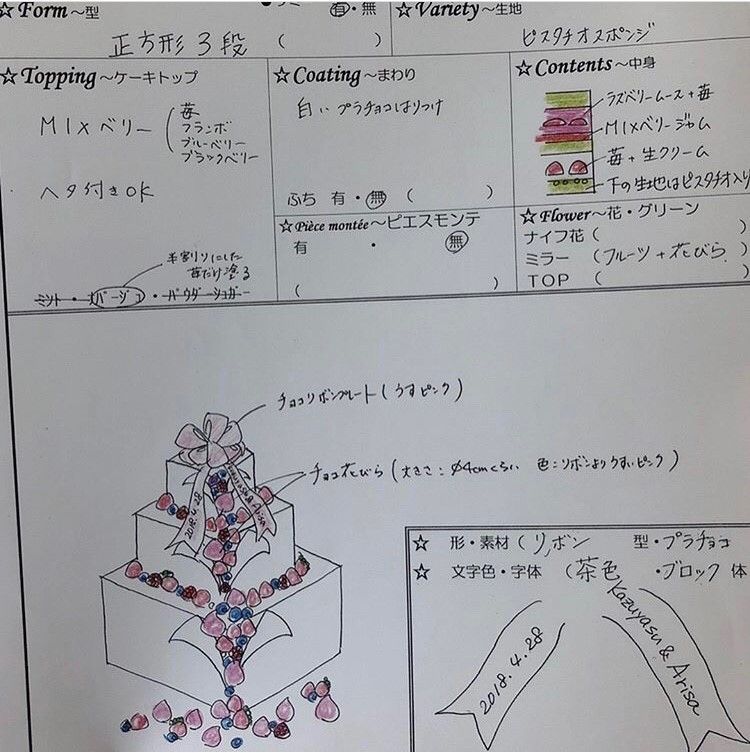 ☆ Form ~型
有・無
正方形 3段 ( )
☆ Variety ~生地
ピスタチオスポンジ
☆ Topping ~ケーキトップ
MIxベリー
苺
フランボ
ブルーベリー
ブラックベリー
ヘタ付きOK
半割りにした
苺だけ塗る
ミント・ナパージュ・パウダーシュガー
☆ Coating ~まわり
白い プラチョコはりつけ
ふち 有・無 ( )
☆ Pièce montée ~ピエスモンテ
有 ・ 無
( )
☆ Contents ~中身
ラズベリームース+苺
MIxベリージャム
苺+生クリーム
下の生地はピスタチオ入り
☆ Flower ~花・グリーン
ナイフ花 ( )
ミラー (フルーツ+花びら )
TOP ( )
チョコリボンプレート (うすピンク)
チョコ花びら (大きさ:φ4cmくらい 色:リボンよりうすいピンク)
2018.4.28
Kazuyasu & Arisa
☆ 形・素材 (リボン 型・プラチョコ
☆ 文字色・字体 (茶色 ・ブロック 体
2018.4.28
Kazuyasu & Arisa